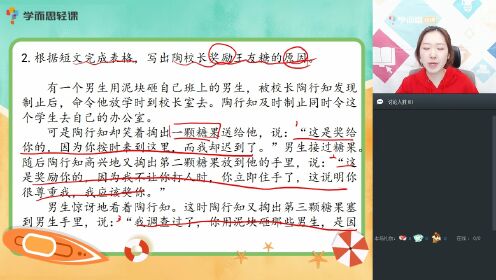 学而思轻课
2. 根据短文完成表格，写出陶校长奖励王友糖的原因。
有一个男生用泥块砸自己班上的男生，被校长陶行知发现
制止后，命令他放学时到校长室去。陶行知及时制止同时令这
个学生去自己的办公室。
可是陶行知却笑着掏出一颗糖果送给他，说：“这是奖给
你的，因为你按时来到这里，而我却迟到了。”男生接过糖果。
随后陶行知高兴地又掏出第二颗糖果放到他的手里，说：“这
是奖励你的，因为我不让你打人时，你立即住手了，这说明你
很尊重我，我应该奖你。”
男生惊讶地看着陶行知。这时陶行知又掏出第三颗糖果塞
到男生手里，说：“我调查过了，你用泥块砸那些男生，是因
学而思